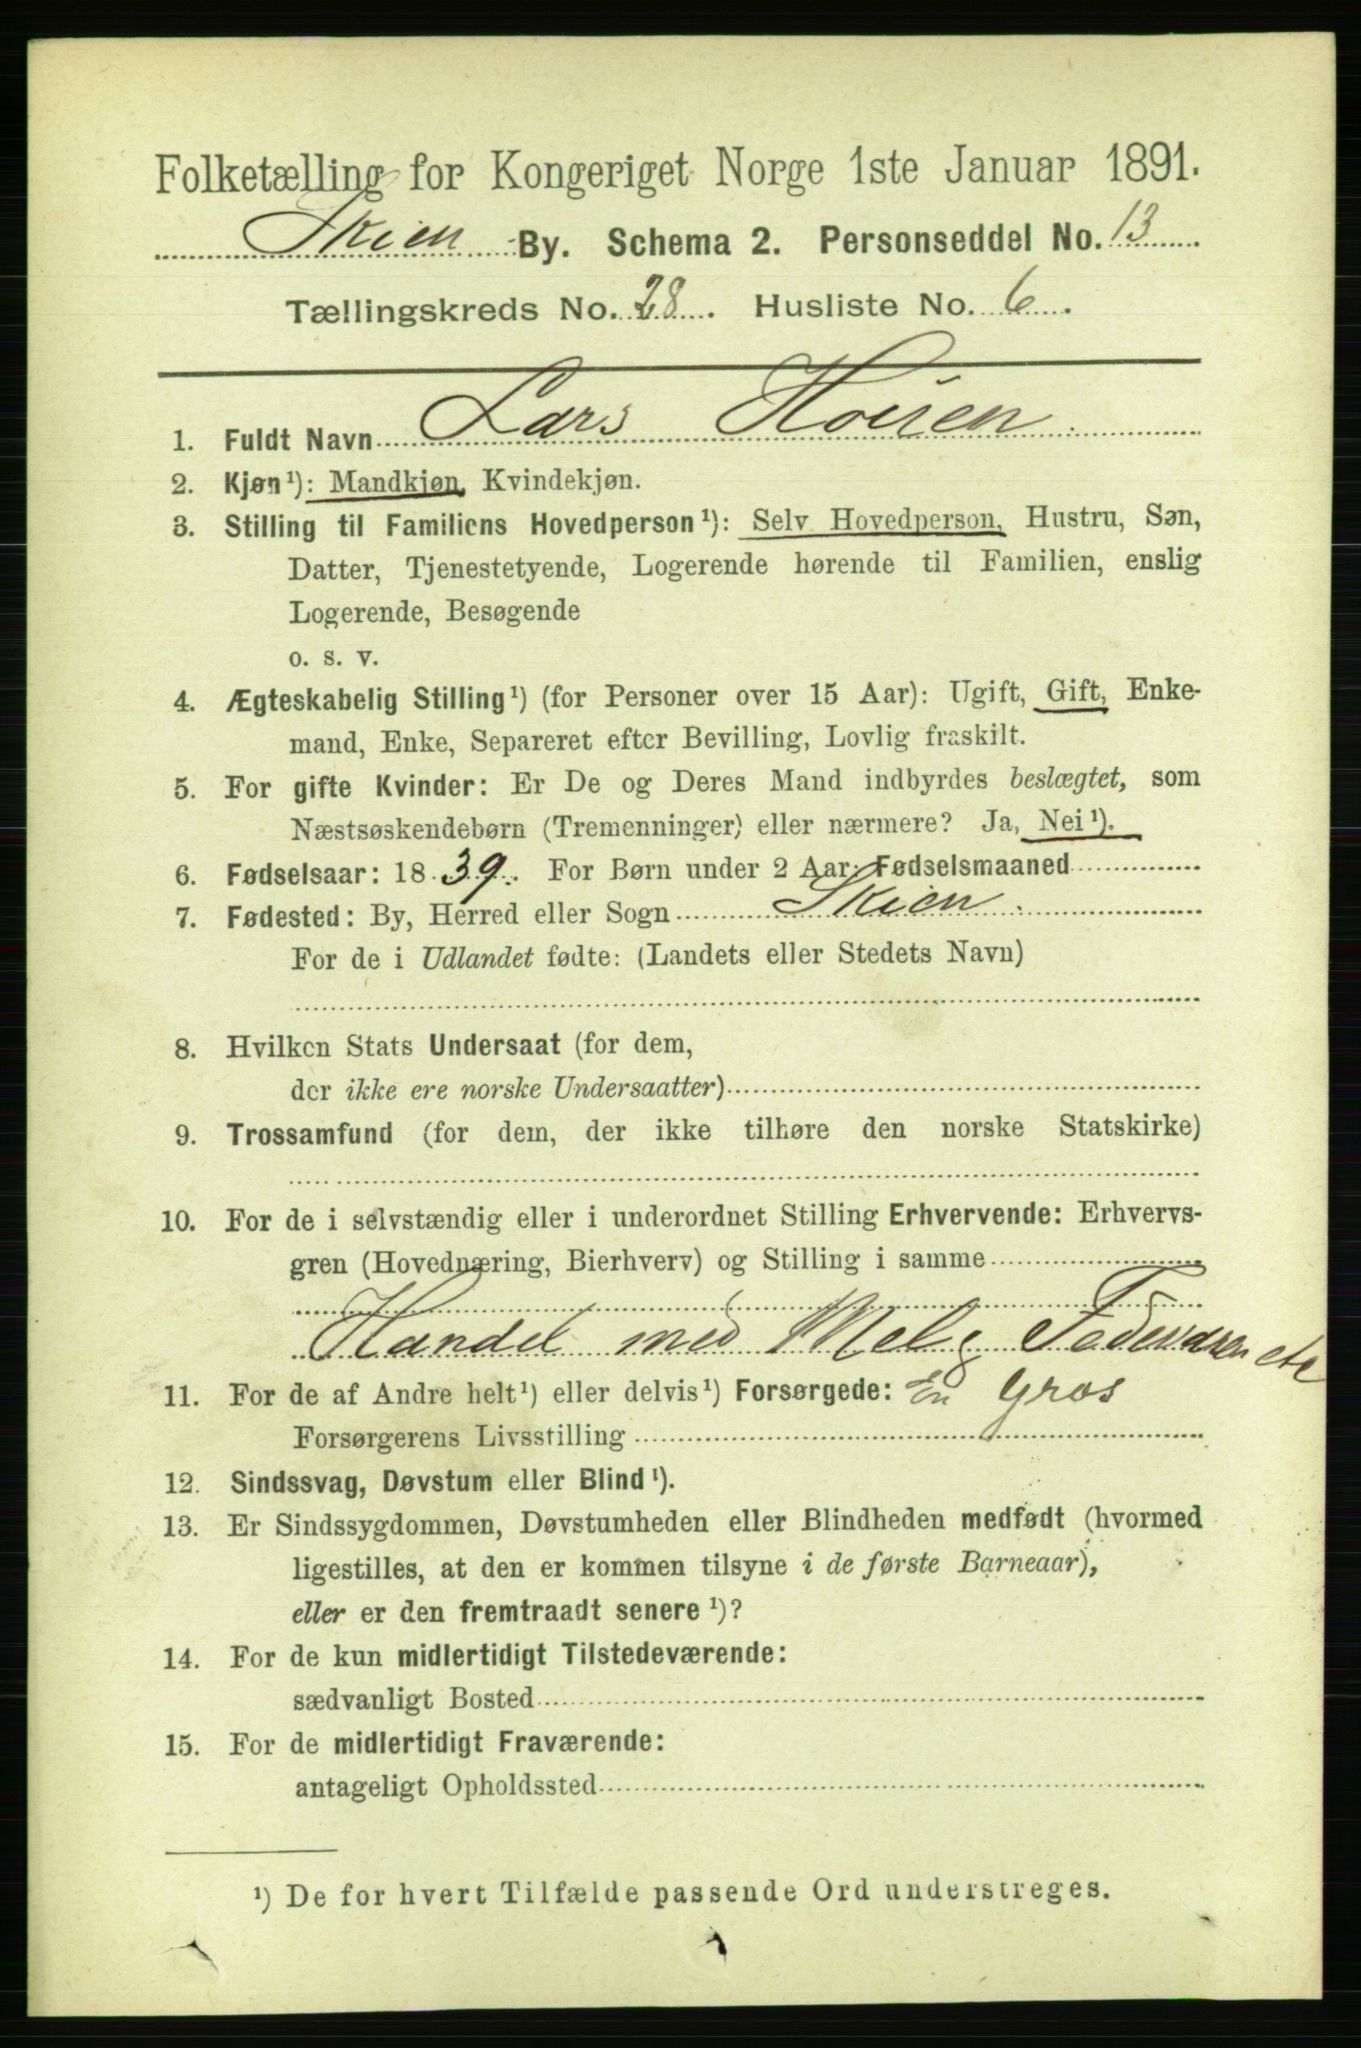 Folketælling for Kongeriget Norge 1ste Januar 1891.
Skien By. Schema 2. Personseddel No. 13
Tællingskreds No. 28. Husliste No. 6.
1. Fuldt Navn Lars Hoien
2. Kjøn ¹): Mandkjøn, Kvindekjøn.
3. Stilling til Familiens Hovedperson ¹): Selv Hovedperson, Hustru, Søn,
Datter, Tjenestetyende, Logerende hørende til Familien, enslig
Logerende, Besøgende
o. s. v.
4. Ægteskabelig Stilling ¹) (for Personer over 15 Aar): Ugift, Gift, Enke-
mand, Enke, Separeret efter Bevilling, Lovlig fraskilt.
5. For gifte Kvinder: Er De og Deres Mand indbyrdes beslægtet, som
Næstsøskendebørn (Tremenninger) eller nærmere? Ja, Nei ¹).
6. Fødselsaar: 1839. For Børn under 2 Aar: Fødselsmaaned
7. Fødested: By, Herred eller Sogn Skien
For de i Udlandet fødte: (Landets eller Stedets Navn)
8. Hvilken Stats Undersaat (for dem,
der ikke ere norske Undersaatter)
9. Trossamfund (for dem, der ikke tilhøre den norske Statskirke)
10. For de i selvstændig eller i underordnet Stilling Erhvervende: Erhvervs-
gren (Hovednæring, Bierhverv) og Stilling i samme
Handel med Mel & Fedevarer etc
11. For de af Andre helt ¹) eller delvis ¹) Forsørgede: En Gros
Forsørgerens Livsstilling
12. Sindssvag, Døvstum eller Blind ¹).
13. Er Sindssygdommen, Døvstumheden eller Blindheden medfødt (hvormed
ligestilles, at den er kommen tilsyne i de første Barneaar),
eller er den fremtraadt senere ¹)?
14. For de kun midlertidigt Tilstedeværende:
sædvanligt Bosted
15. For de midlertidigt Fraværende:
antageligt Opholdssted
¹) De for hvert Tilfælde passende Ord understreges.